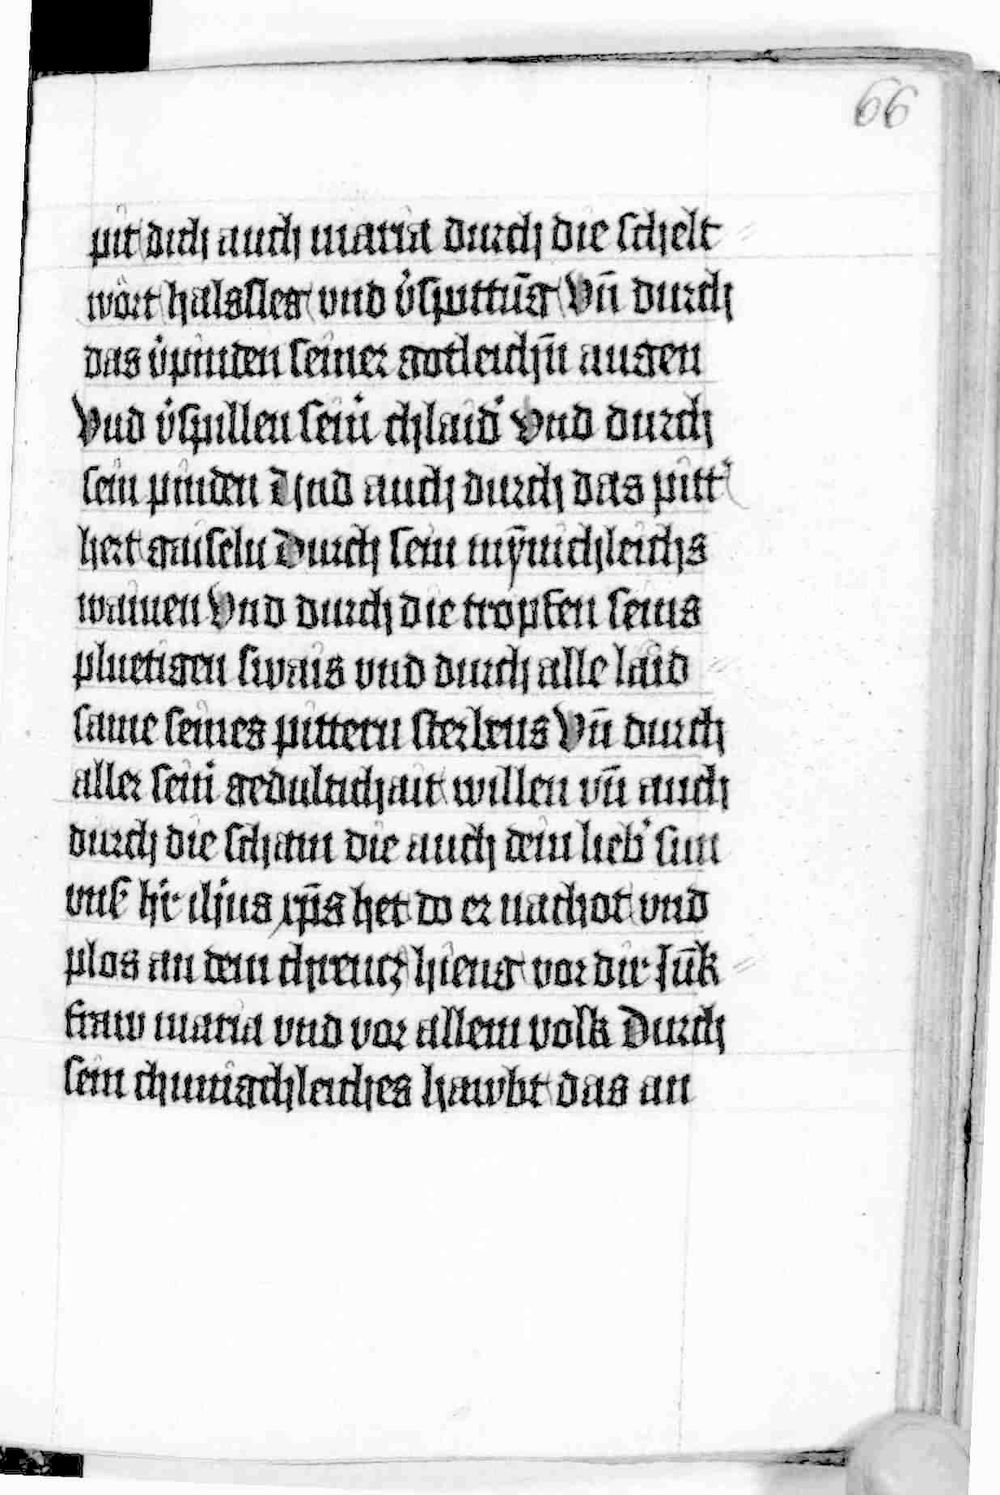 66
pit dich auch maria durch die schelt
wört halssleg vnd v̓sputtūg Vn̄ durch
das v̓pinden seiner gotleichn̄ augen
Vnd v̓spillen sein̓ chlaid̓ Vnd durch
sein pinden Vnd auch durch das pitt̓
hert gaiseln Durch sein mȳnichleichs
wainen Vnd durch die tropfen seins
pluetigen swais vnd durch alle laid
same seines pittern sterbens Vn̄ durch
aller sein̓ gedultichait willen vn̄ auch
durch die scham die auch dein lieb̓ sun
vns̓ h̓r ih̓us xp̄s het do er nachot vnd
plos an dem chreucz hieng vor dir iūk
fraw maria vnd vor allem volk Durch
sein chunigchleiches hawbt das an